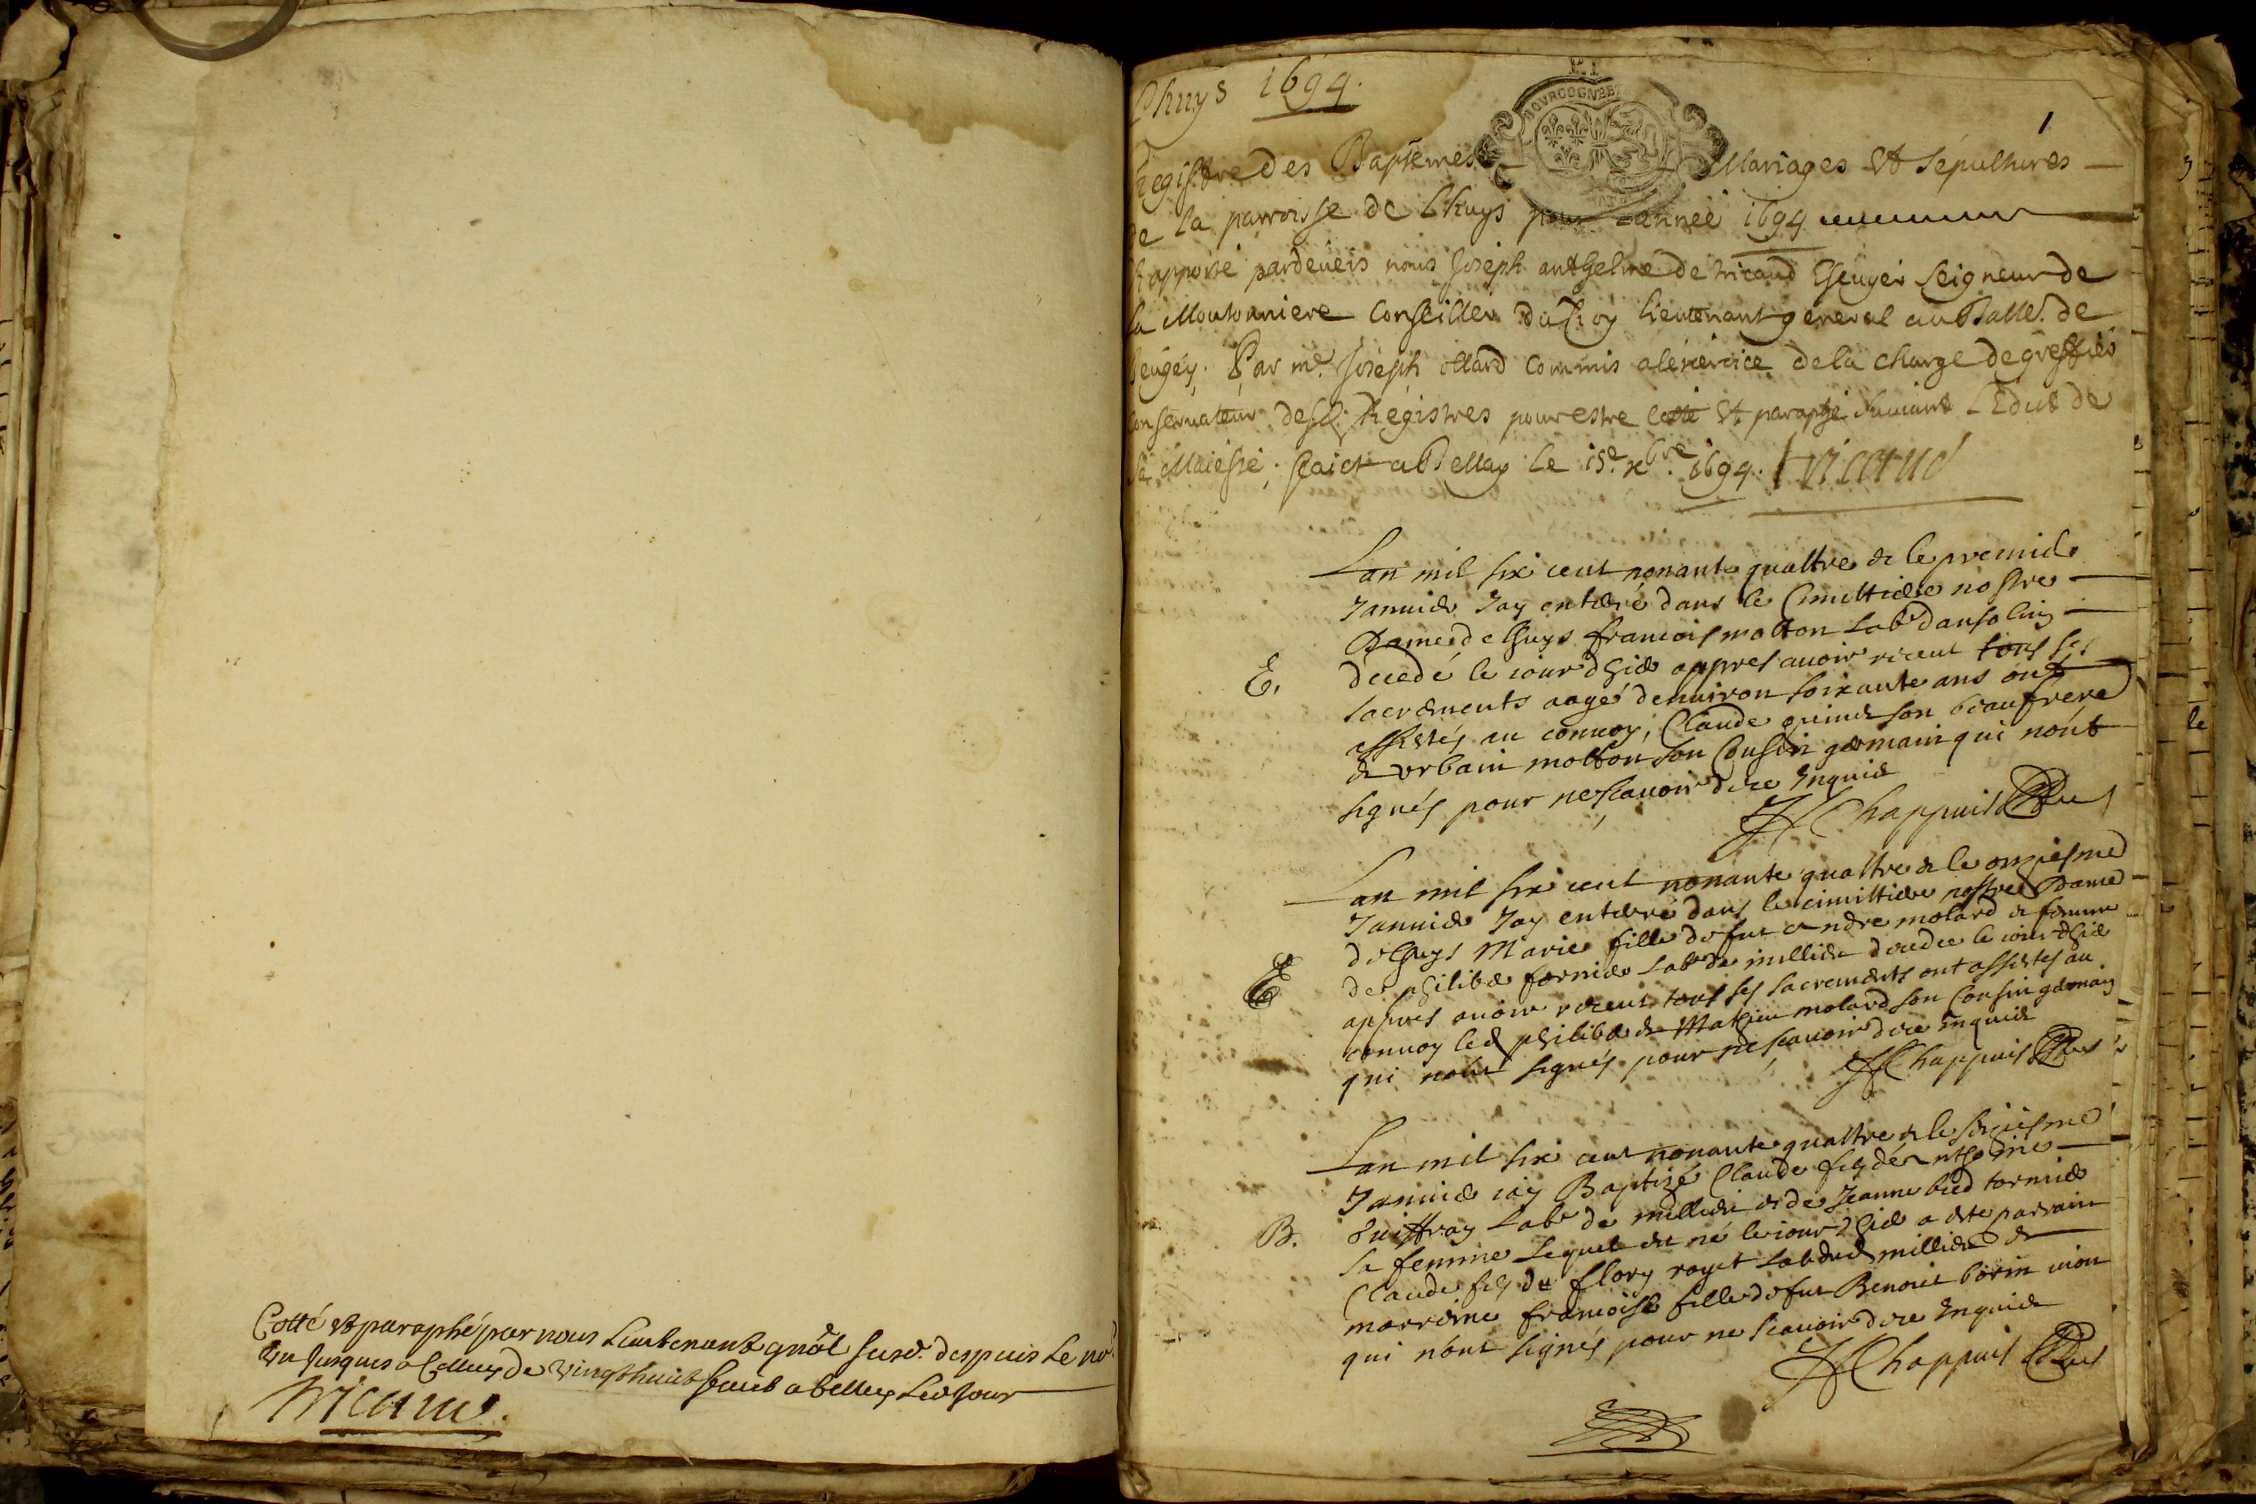 Cotté et paraphé par nous Lieutenant gnal susd. despuis Le no.
un Jusques a Celluy de vingt huict faict a belley Led Jour
Tricaud.
Lhuys 1694.
BOVRGOGNE
1
Registre des Baptemes Mariages Et Sépultures
de la parroisse de Lhuys pour Lannée 1694
Rapporté pardeuers nous Joseph anthelme de tricaud Escuyer Seigneur de
la Moutonniere Conseiller du Roy Lieutenant general au Balle. de
Beugey. Par me. Joseph ollard Commis a lexercice de la charge de greffier
Conseruateur desd. Registres pour estre Cotté Et paraphé suiuant LEdict de
sa Maiesté; faict a Belley le 15e. xbre. 1694. Tricaud
Lan mil six cent nonante quattre & le premier
Januier Jay enterré dans le Cimittiere nostre
Dame de lhuys francois molton Labr dansolin
E.
decedé le iour dhier appres auoir receut tous ses
sacrements aagé denuiron soixante ans ont
assistés au conuoy, Claude son beaufrere
& vrbain molton son Cousin germain qui nont
signés pour ne scauoir de ce Enquis
Chappuis Cure
Lan mil six cent nonante quattre & le onziesme
Januier Jay enterré dans le cimittiere nostre Dame
de lhuys Marie fille de fut andre molard & femme
E
de philibert fornier Labr de millieu decedee le iour dhier
appres auoir receut tous ses sacrements ont assistes au
conuoy led philibert & Mathieu molard son Cousin germain
qui nont signés pour ne scauoir de ce enquis
Chappuis Cure
Lan mil six cent nonante quattre & le seiziesme
Januier iay Baptizé Claude filz de Anthoine
B.
Labr de millieu & de Jeanne
sa femme Lequel est né le iour dhier a esté parrain
Claude filz de flory royet Lab dud millieu &
marreine francoise fille de fut Benoist
qui nont signés pour ne scauoir de ce Enquis
Chappuis Cure